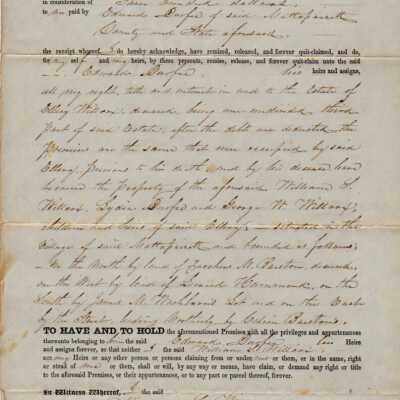 in consideration of
to me paid by Edward Dexter of said Mattapoisett
County and State aforesaid
the receipt whereof, I do hereby acknowledge, have remised, released, and forever quit-claimed, and do,
for my self and my heirs, by these presents, remise, release, and forever quit-claim unto the said
Edward Dexter, his heirs and assigns,
all my right, title and interest in and to the Estate of
Ellery Willcox, deceased, being one undivided third
part of said Estate, after the debts are deducted, the
premises are the same that were occupied by said
Ellery, previous to his death and by his decease have
become the property of the aforesaid William S.
Willcox, Lydia Dexter and George W. Willcox,
children and heirs of said Ellery; situated in the
village of said Mattapoisett and bounded as follows;
On the North by land of Zaccheus M. Barstow, deceased,
on the West by land of Hammond, on the
South by James M. Lot and on the East
by the Street, leading Northerly by Barstows.
TO HAVE AND TO HOLD the aforementioned Premises with all the privileges and appurtenances
thereunto belonging to him the said Edward Dexter, his Heirs
and assigns forever, so that neither I the said William S. Willcox
my Heirs or any other person or persons claiming from or under me or them, or in the name, right
or stead of me or them, shall or will, by any way or means, have, claim, or demand any right or title
to the aforesaid Premises, or their appurtenances, or to any part or parcel thereof, forever.
In Witness Whereof, I the said